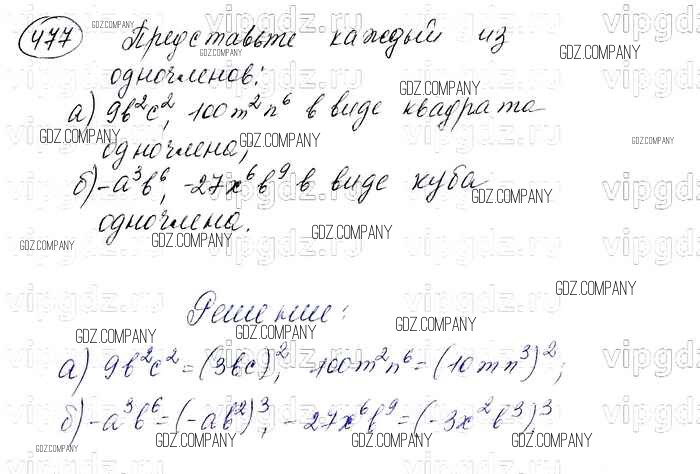 477 Представьте каждый из
одночленов:
а) 9b²c², 100m²n⁶ в виде квадрата
одночлена;
б) -a³b⁶, -27x⁶b⁹ в виде куба
одночлена.
Решение:
а) 9b²c² = (3bc)², 100m²n⁶ = (10mn³)²;
б) -a³b⁶ = (-ab²)³, -27x⁶b⁹ = (-3x²b³)³